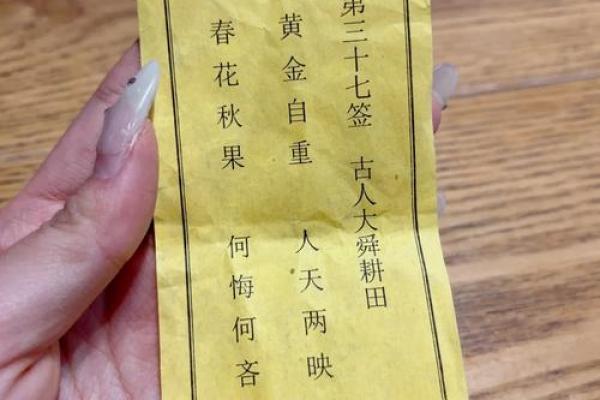 第三十七签 古人大舜耕田
黄金自重 人天两映
春花秋果 何悔何吝